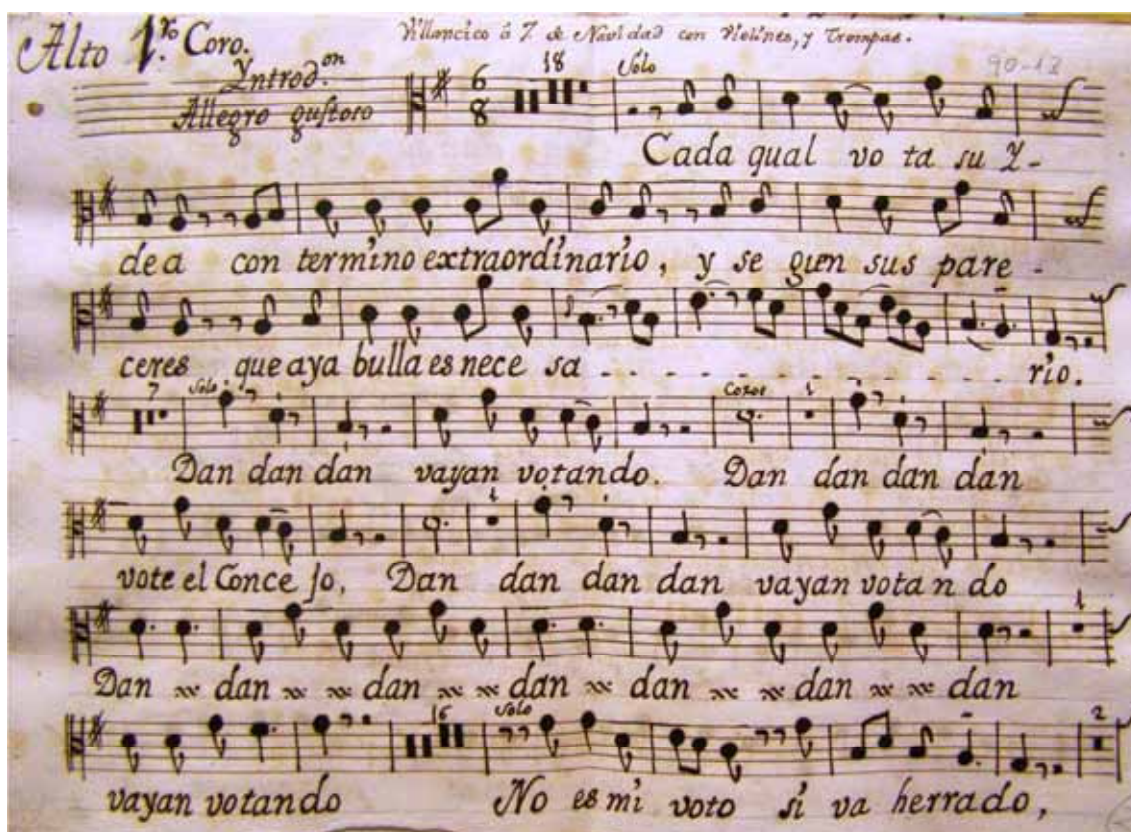 Alto 1.ro Coro.
Villancico â 7 de Navidad con Violines, y Trompas.
90-13
Yntrod.on
Allegro gustoso
6
8
18
Solo
Cada qual vo ta su Y-
dea con termino extraordinario, y se guen sus pare-
ceres que aya bulla es nece sa - - - - - - - - - - - rio.
7 Solo Coros 1
Dan dan dan vayan votando. Dan dan dan dan
1
vote el Conce jo, Dan dan dan dan vayan vota n do
1
Dan dan dan dan dan dan dan
16 Solo 2
vayan votando No es mi voto si va herrado,